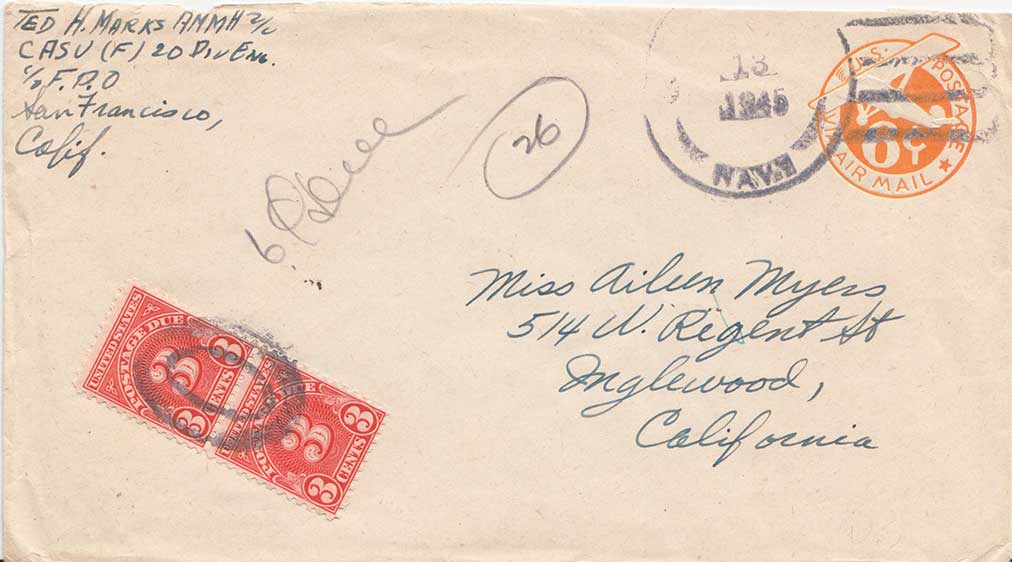 TED H. MARKS AMMH 2/c
CASU (F) 20 Div Eng.
c/o F.P.O
San Francisco,
Calif.
6 ¢ Due
26
13
1945
NAVY
U.S. POSTAGE
6¢
VIA AIR MAIL
Miss Aileen Myers
514 W. Regent St
Inglewood,
California
UNITED STATES
POSTAGE DUE
3
3 CENTS 3
UNITED STATES
POSTAGE DUE
3
3 CENTS 3